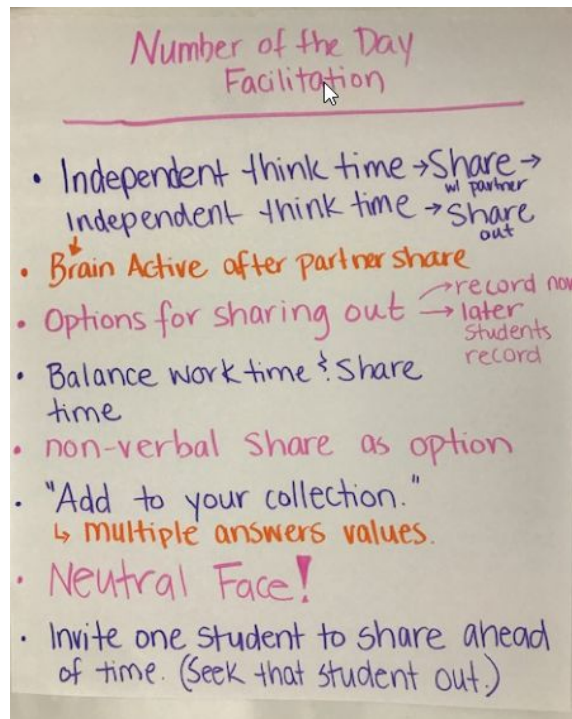 Number of the Day
Facilitation
• Independent think time → Share →
w/ partner
Independent think time → Share
out
• Brain Active after partner share
• Options for sharing out → record now
→ later
students
record
• Balance work time & Share
time
• non-verbal share as option
• "Add to your collection."
↳ multiple answers values.
• Neutral Face!
• Invite one student to share ahead
of time. (Seek that student out.)